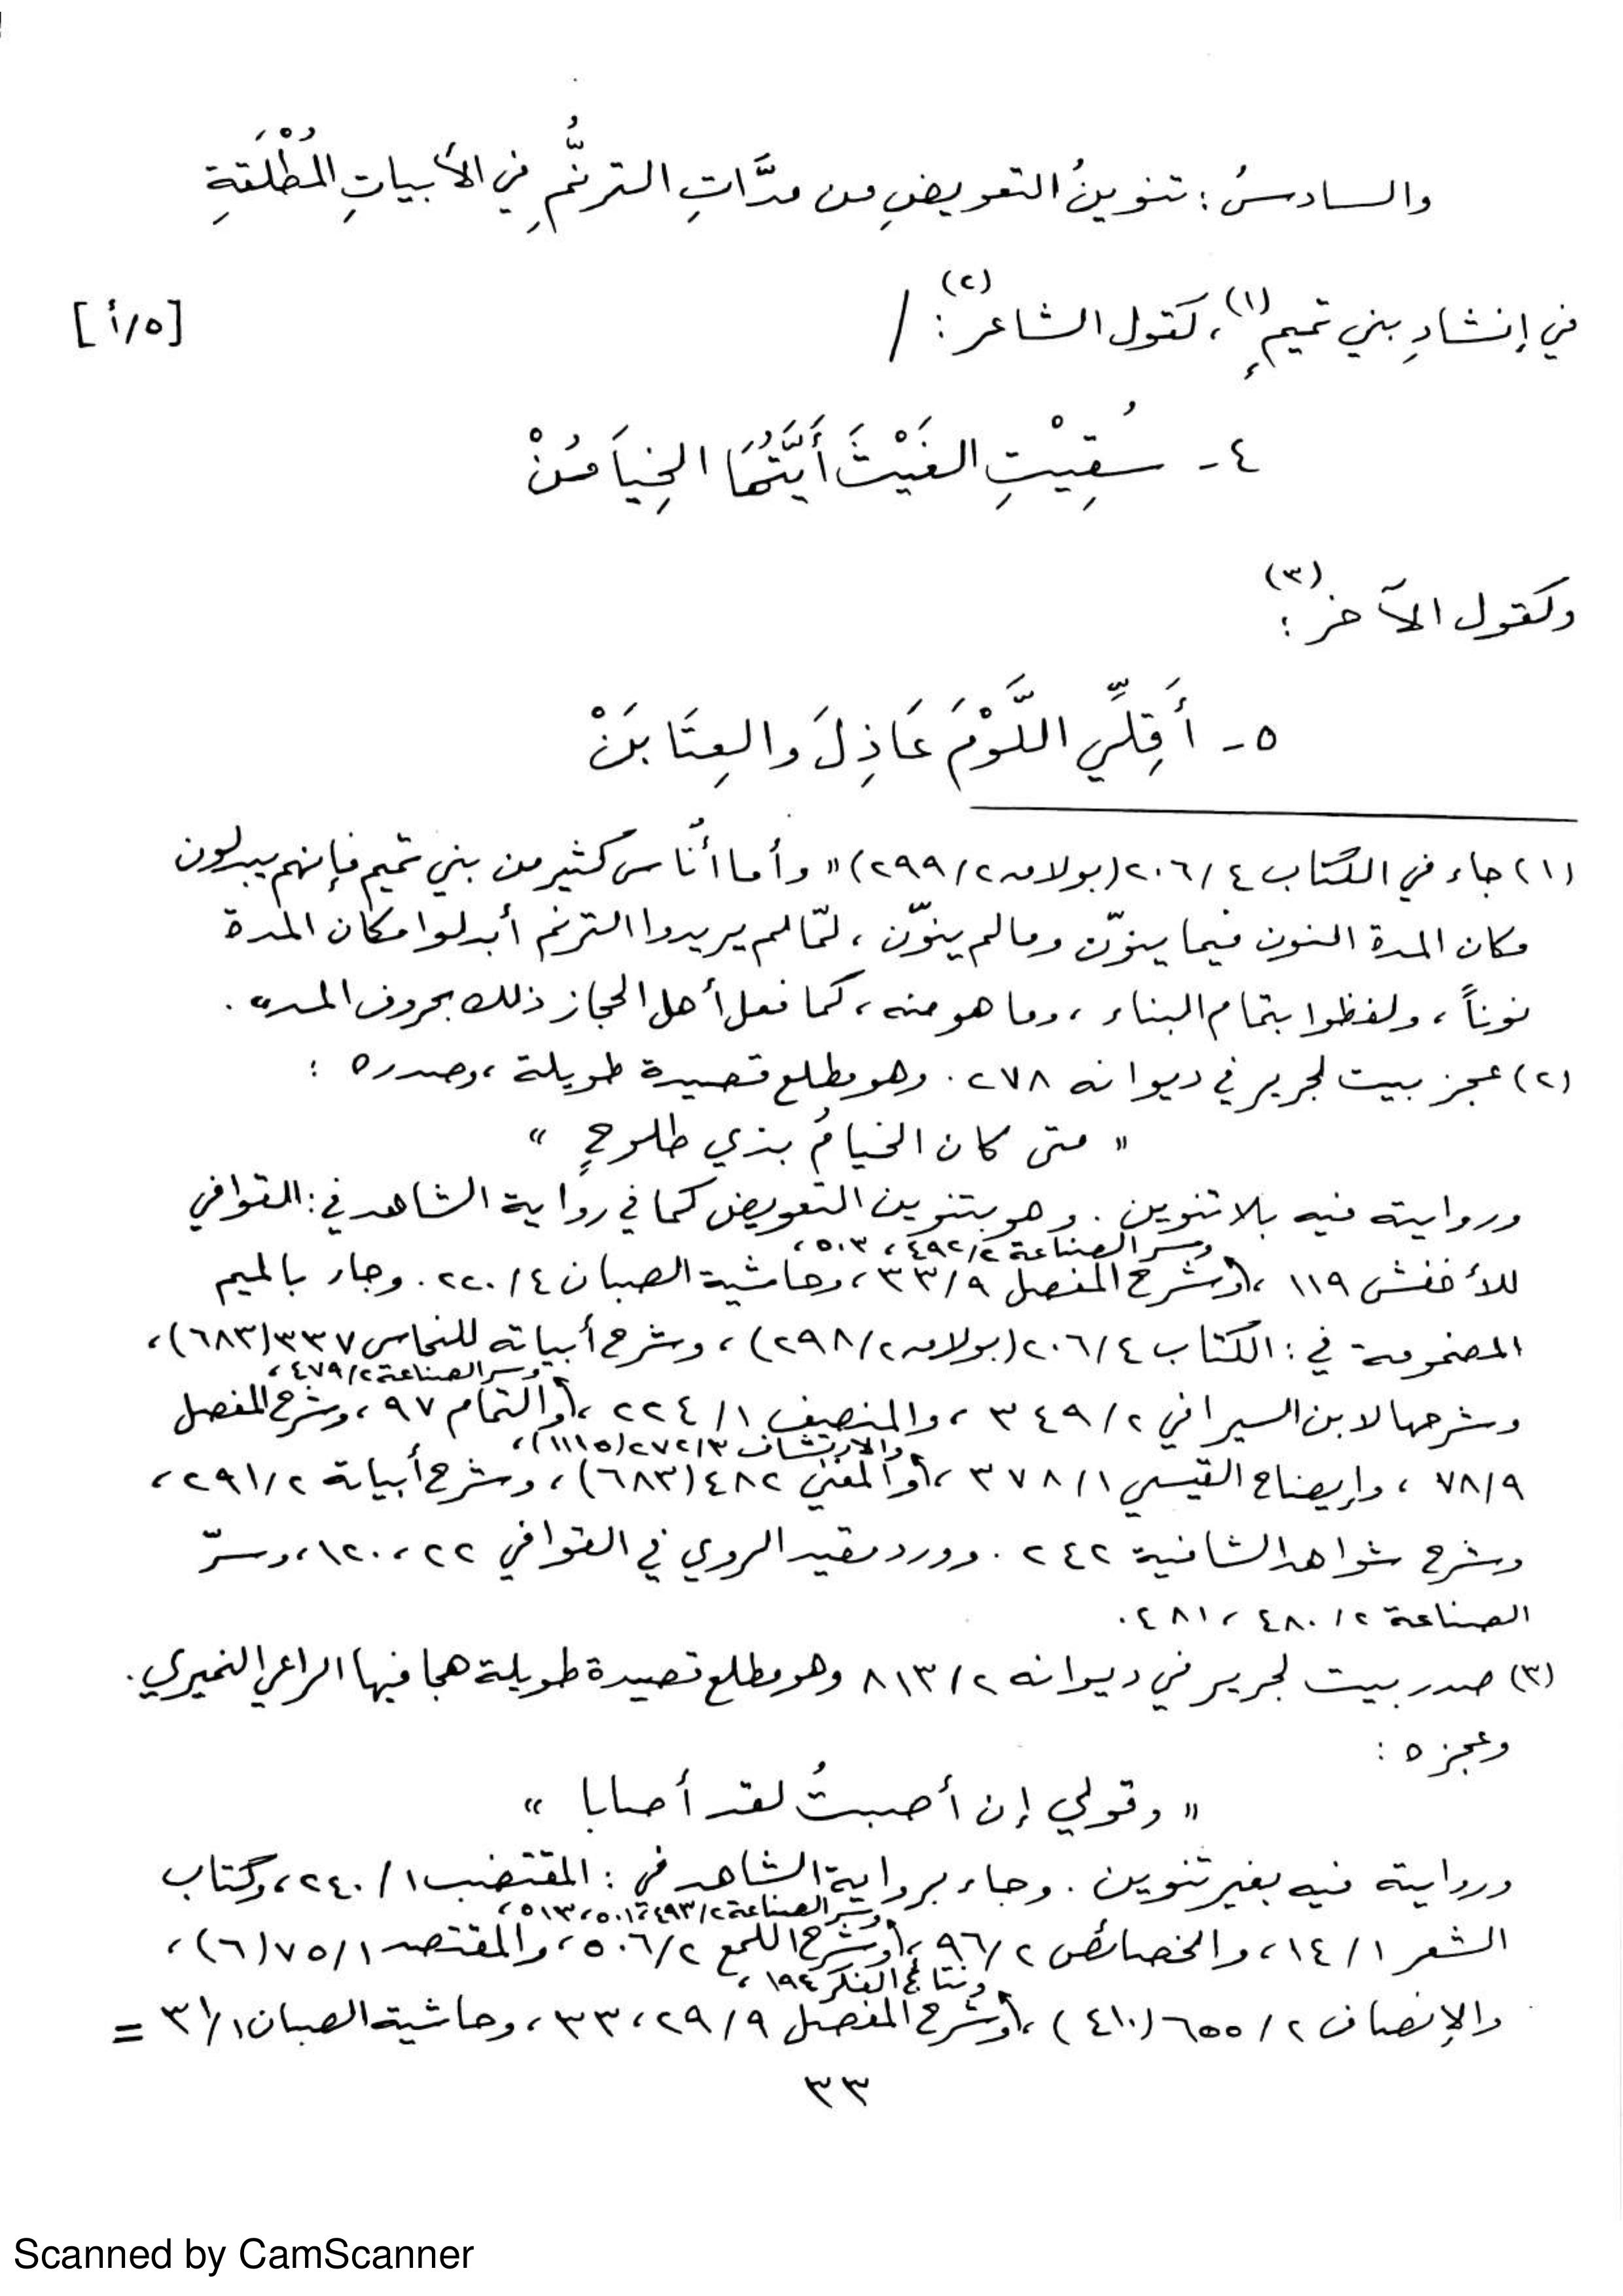 والسادسُ: تنوينُ التعويضِ من مدَّاتِ الترنُّمِ في الأبياتِ المُطْلَقَةِ
في إنشادِ بني تميمٍ (١)، كقول الشاعر (٢): / [٥/أ]
٤- سُقِيْتِ الغَيْثَ أَيَّتُهَا الخِيَامُنْ
وكقول الآخر (٣):
٥- أَقِلِّي اللَّوْمَ عَاذِلَ والعِتَابَنْ
(١) جاء في الكتاب ٢٠٦/٤ (بولاق ٢٩٩/٢) " وأما أُناس كثير من بني تميم فإنهم يبدلون
مكان المدة النون فيما ينوّن وما لم ينوّن، لمّا لم يريدوا الترنم أبدلوا مكان المدة
نوناً، ولفظوا بتمام البناء، وما هو منه، كما فعل أهل الحجاز ذلك بحروف المد".
(٢) عجز بيت لجرير في ديوانه ٢٧٨. وهو مطلع قصيدة طويلة، وصدره:
" متى كان الخيامُ بذي طلوحٍ "
وروايته فيه بلا تنوين. وهو بتنوين التعويض كما في رواية الشاهد في: القوافي
وسر الصناعة ٤٩٢/٢، ٥٠٣،
للأخفش ١١٩، وشرح المفصل ٣٣/٩، وحاشية الصبان ٢٢٠/٤. وجاء بالميم
المضمومة في: الكتاب ٢٠٦/٤ (بولاق ٢٩٨/٢)، وشرح أبياته للنحاس ٣٣٧ (٦٨٣)،
وسر الصناعة ٤٧٩/٢،
وشرحها لابن السيرافي ٣٤٩/٢، والمنصف ٢٢٤/١، والتمام ٩٧، وشرح المفصل
والارتشاف ٢٧٢/٣ (١١١٥)،
٧٨/٩، وإيضاح القيسي ٣٧٨/١، والمغني ٤٨٢ (٦٨٣)، وشرح أبياته ٢٩١/٢،
وشرح شواهد الشافية ٢٤٢. وورد مقيد الروي في القوافي ٢٢، ١٢٠، وسرّ
الصناعة ٤٨٠/٢، ٤٨١.
(٣) صدر بيت لجرير في ديوانه ٨١٣/٢ وهو مطلع قصيدة طويلة هجا فيها الراعي النميري.
وعجزه:
" وقولي إن أصبتُ لقد أصابا "
وروايته فيه بغير تنوين. وجاء برواية الشاهد في: المقتضب ٢٤٠/١، وكتاب
وسر الصناعة ٤٩٣/٢، ٥٠١، ٥١٣،
الشعر ١٤/١، والخصائص ٩٦/٢، وشرح اللمع ٥٠٦/٢، والمقتصد ٧٥/١ (٦)،
ونتائج الفكر ١٩٤،
والإنصاف ٦٥٥/٢ (٤١٠)، وشرح المفصل ٢٩/٩، ٣٣، وحاشية الصبان ٣١/١ =
٣٣
Scanned by CamScanner